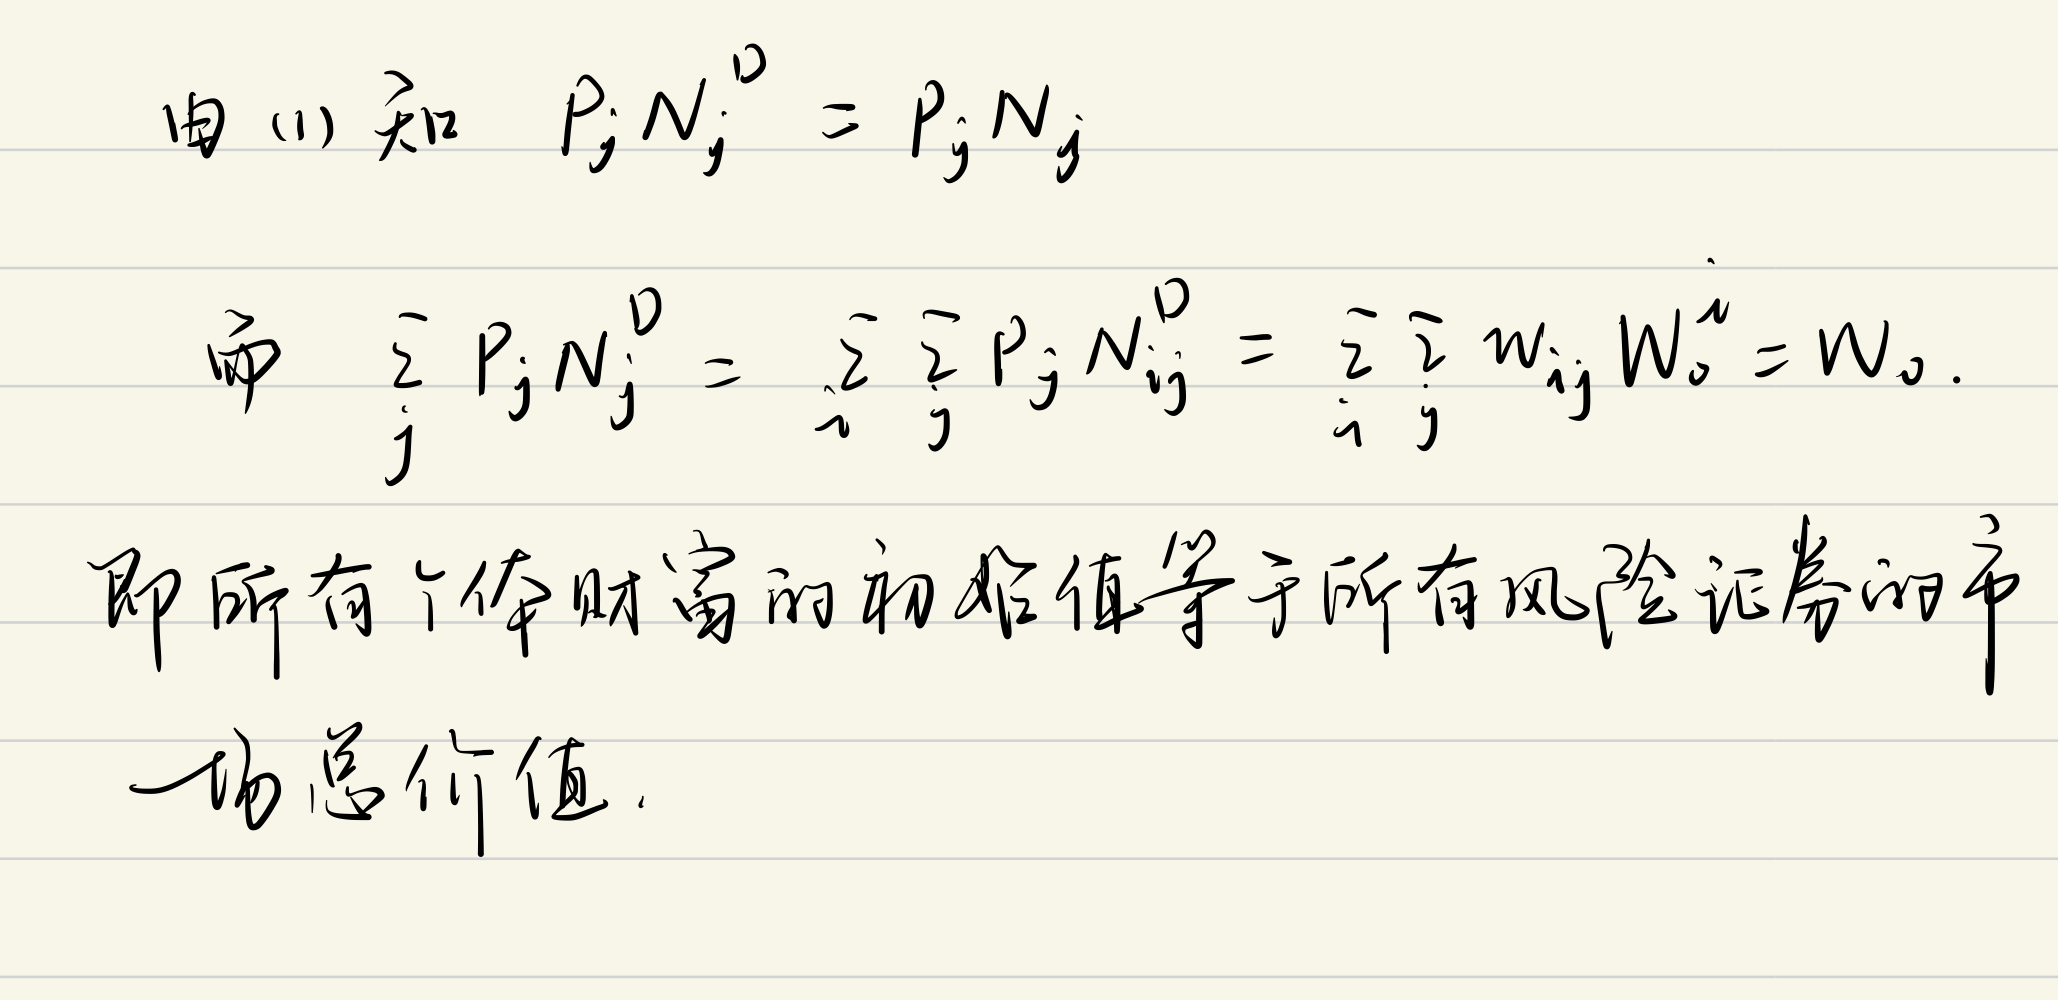 由(1)知 P_j N_j^D = P_j N_j
而 Σ_j P_j N_j^D = Σ_i Σ_j P_j N_{ij}^D = Σ_i Σ_j w_{ij} W_0^i = W_0.
即所有个体财富的初始值等于所有风险证券的市
场总价值.